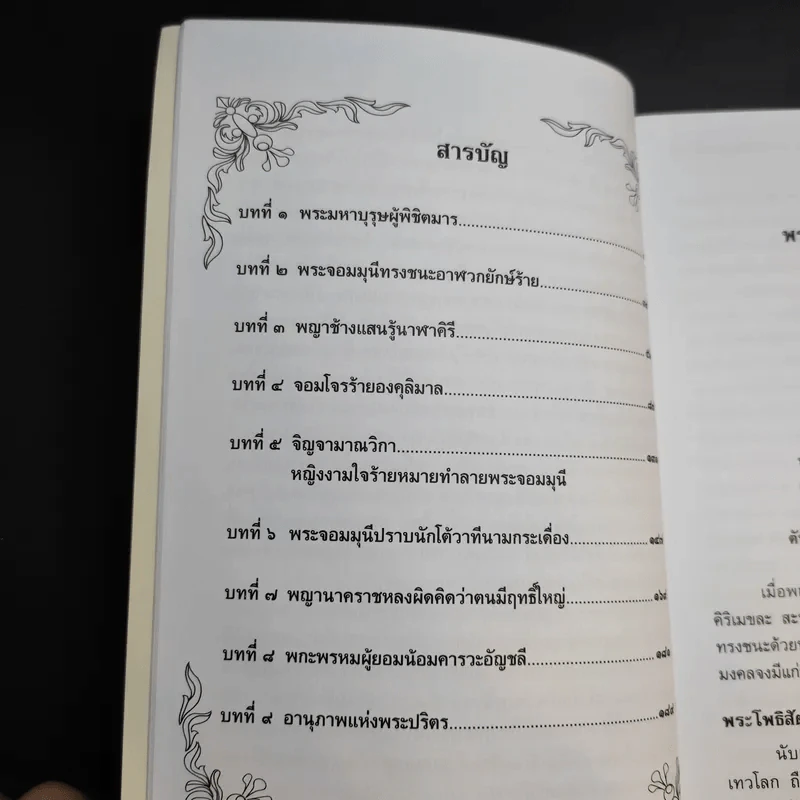 สารบัญ
บทที่ ๑ พระมหาบุรุษผู้พิชิตมาร
บทที่ ๒ พระจอมมุนีทรงชนะอาฬวกยักษ์ร้าย
บทที่ ๓ พญาช้างแสนรู้นาฬาคิรี
บทที่ ๔ จอมโจรร้ายองคุลิมาล
บทที่ ๕ จิญจามาณวิกา
หญิงงามใจร้ายหมายทำลายพระจอมมุนี
บทที่ ๖ พระจอมมุนีปราบนักโต้วาทีนามกระเดื่อง
บทที่ ๗ พญานาคราชหลงผิดคิดว่าตนมีฤทธิ์ใหญ่
บทที่ ๘ พกะพรหมผู้ยอมน้อมคารวะอัญชลี
บทที่ ๙ อานุภาพแห่งพระปริตร
คิริเมขละ
ทรงชนะด้วย
มงคลจงมีแก่
เทวโลก